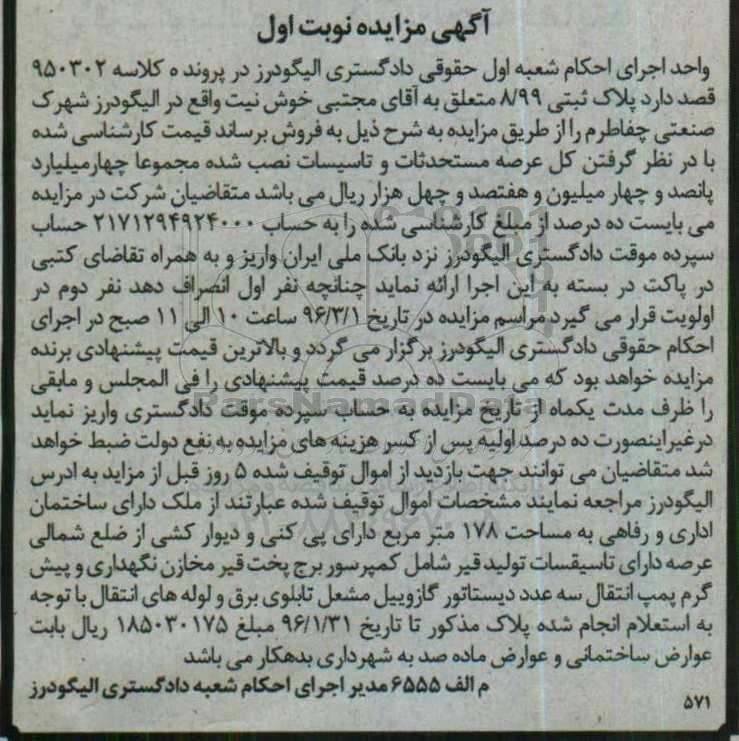 آگهی مزایده نوبت اول
واحد اجرای احکام شعبه اول حقوقی دادگستری الیگودرز در پرونده کلاسه ۹۵۰۳۰۲
قصد دارد پلاک ثبتی ۸/۹۹ متعلق به آقای مجتبی خوش نیت واقع در الیگودرز شهرک
صنعتی چفاطرم را از طریق مزایده به شرح ذیل به فروش برساند قیمت کارشناسی شده
با در نظر گرفتن کل عرصه مستحدثات و تاسیسات نصب شده مجموعا چهارمیلیارد
پانصد و چهار میلیون و هفتصد و چهل هزار ریال می باشد متقاضیان شرکت در مزایده
می بایست ده درصد از مبلغ کارشناسی شده را به حساب ۲۱۷۱۲۹۴۹۲۴۰۰۰ حساب
سپرده موقت دادگستری الیگودرز نزد بانک ملی ایران واریز و به همراه تقاضای کتبی
در پاکت در بسته به این اجرا ارائه نماید چنانچه نفر اول انصراف دهد نفر دوم در
اولویت قرار می گیرد مراسم مزایده در تاریخ ۹۶/۳/۱ ساعت ۱۰ الی ۱۱ صبح در اجرای
احکام حقوقی دادگستری الیگودرز برگزار می گردد و بالاترین قیمت پیشنهادی برنده
مزایده خواهد بود که می بایست ده درصد قیمت پیشنهادی را فی المجلس و مابقی
را ظرف مدت یکماه از تاریخ مزایده به حساب سپرده موقت دادگستری واریز نماید
درغیراینصورت ده درصد اولیه پس از کسر هزینه های مزایده به نفع دولت ضبط خواهد
شد متقاضیان می توانند جهت بازدید از اموال توقیف شده ۵ روز قبل از مزاید به ادرس
الیگودرز مراجعه نمایند مشخصات اموال توقیف شده عبارتند از ملک دارای ساختمان
اداری و رفاهی به مساحت ۱۷۸ متر مربع دارای پی کنی و دیوار کشی از ضلع شمالی
عرصه دارای تاسیقسات تولید قیر شامل کمپرسور برج پخت قیر مخازن نگهداری و پیش
گرم پمپ انتقال سه عدد دیستاتور گازوییل مشعل تابلوی برق و لوله های انتقال با توجه
به استعلام انجام شده پلاک مذکور تا تاریخ ۹۶/۱/۳۱ مبلغ ۱۸۵۰۳۰۱۷۵ ریال بابت
عوارض ساختمانی و عوارض ماده صد به شهرداری بدهکار می باشد
م الف ۶۵۵۵ مدیر اجرای احکام شعبه دادگستری الیگودرز
۵۷۱
ParsNamadData